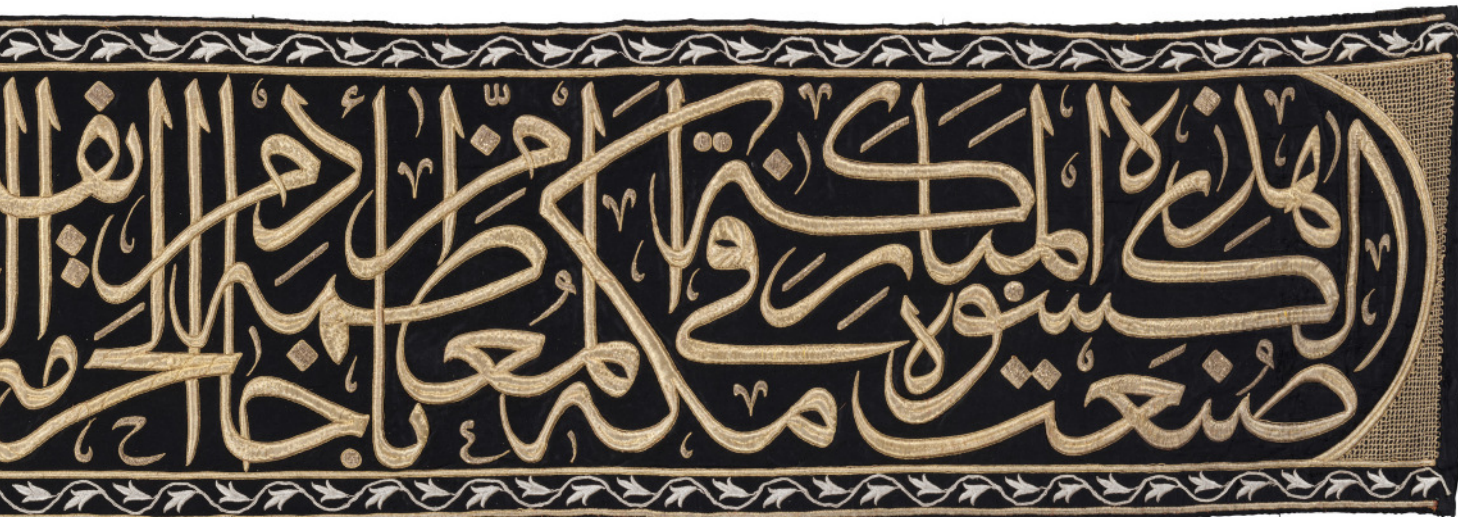 صنعت هذه الكسوة المباركة في مكة المعظمة بأمر خادم الحر